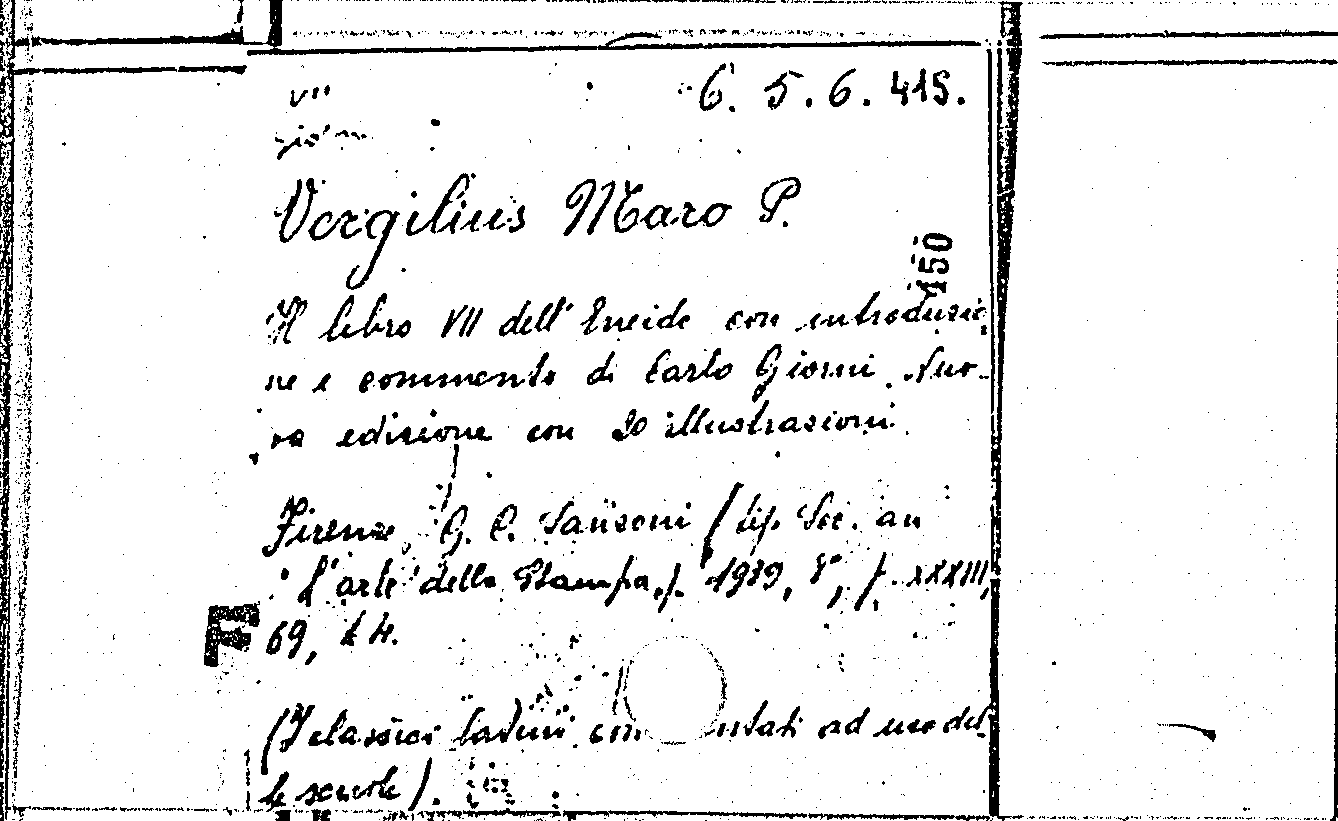 VII
6. 5. 6. 415.
Giorni
Vergilius Maro P.
150
Il libro VII dell'Eneide con introduzio
ne e commento di Carlo Giorni. Nuo-
va edizione con 20 illustrazioni.
Firenze, G. C. Sansoni (tip. Soc. an
l'arte della Stampa), 1939, 8°, p. XXXIII,
F
69, t 4.
(I classici latini com ntati ad uso del-
le scuole).